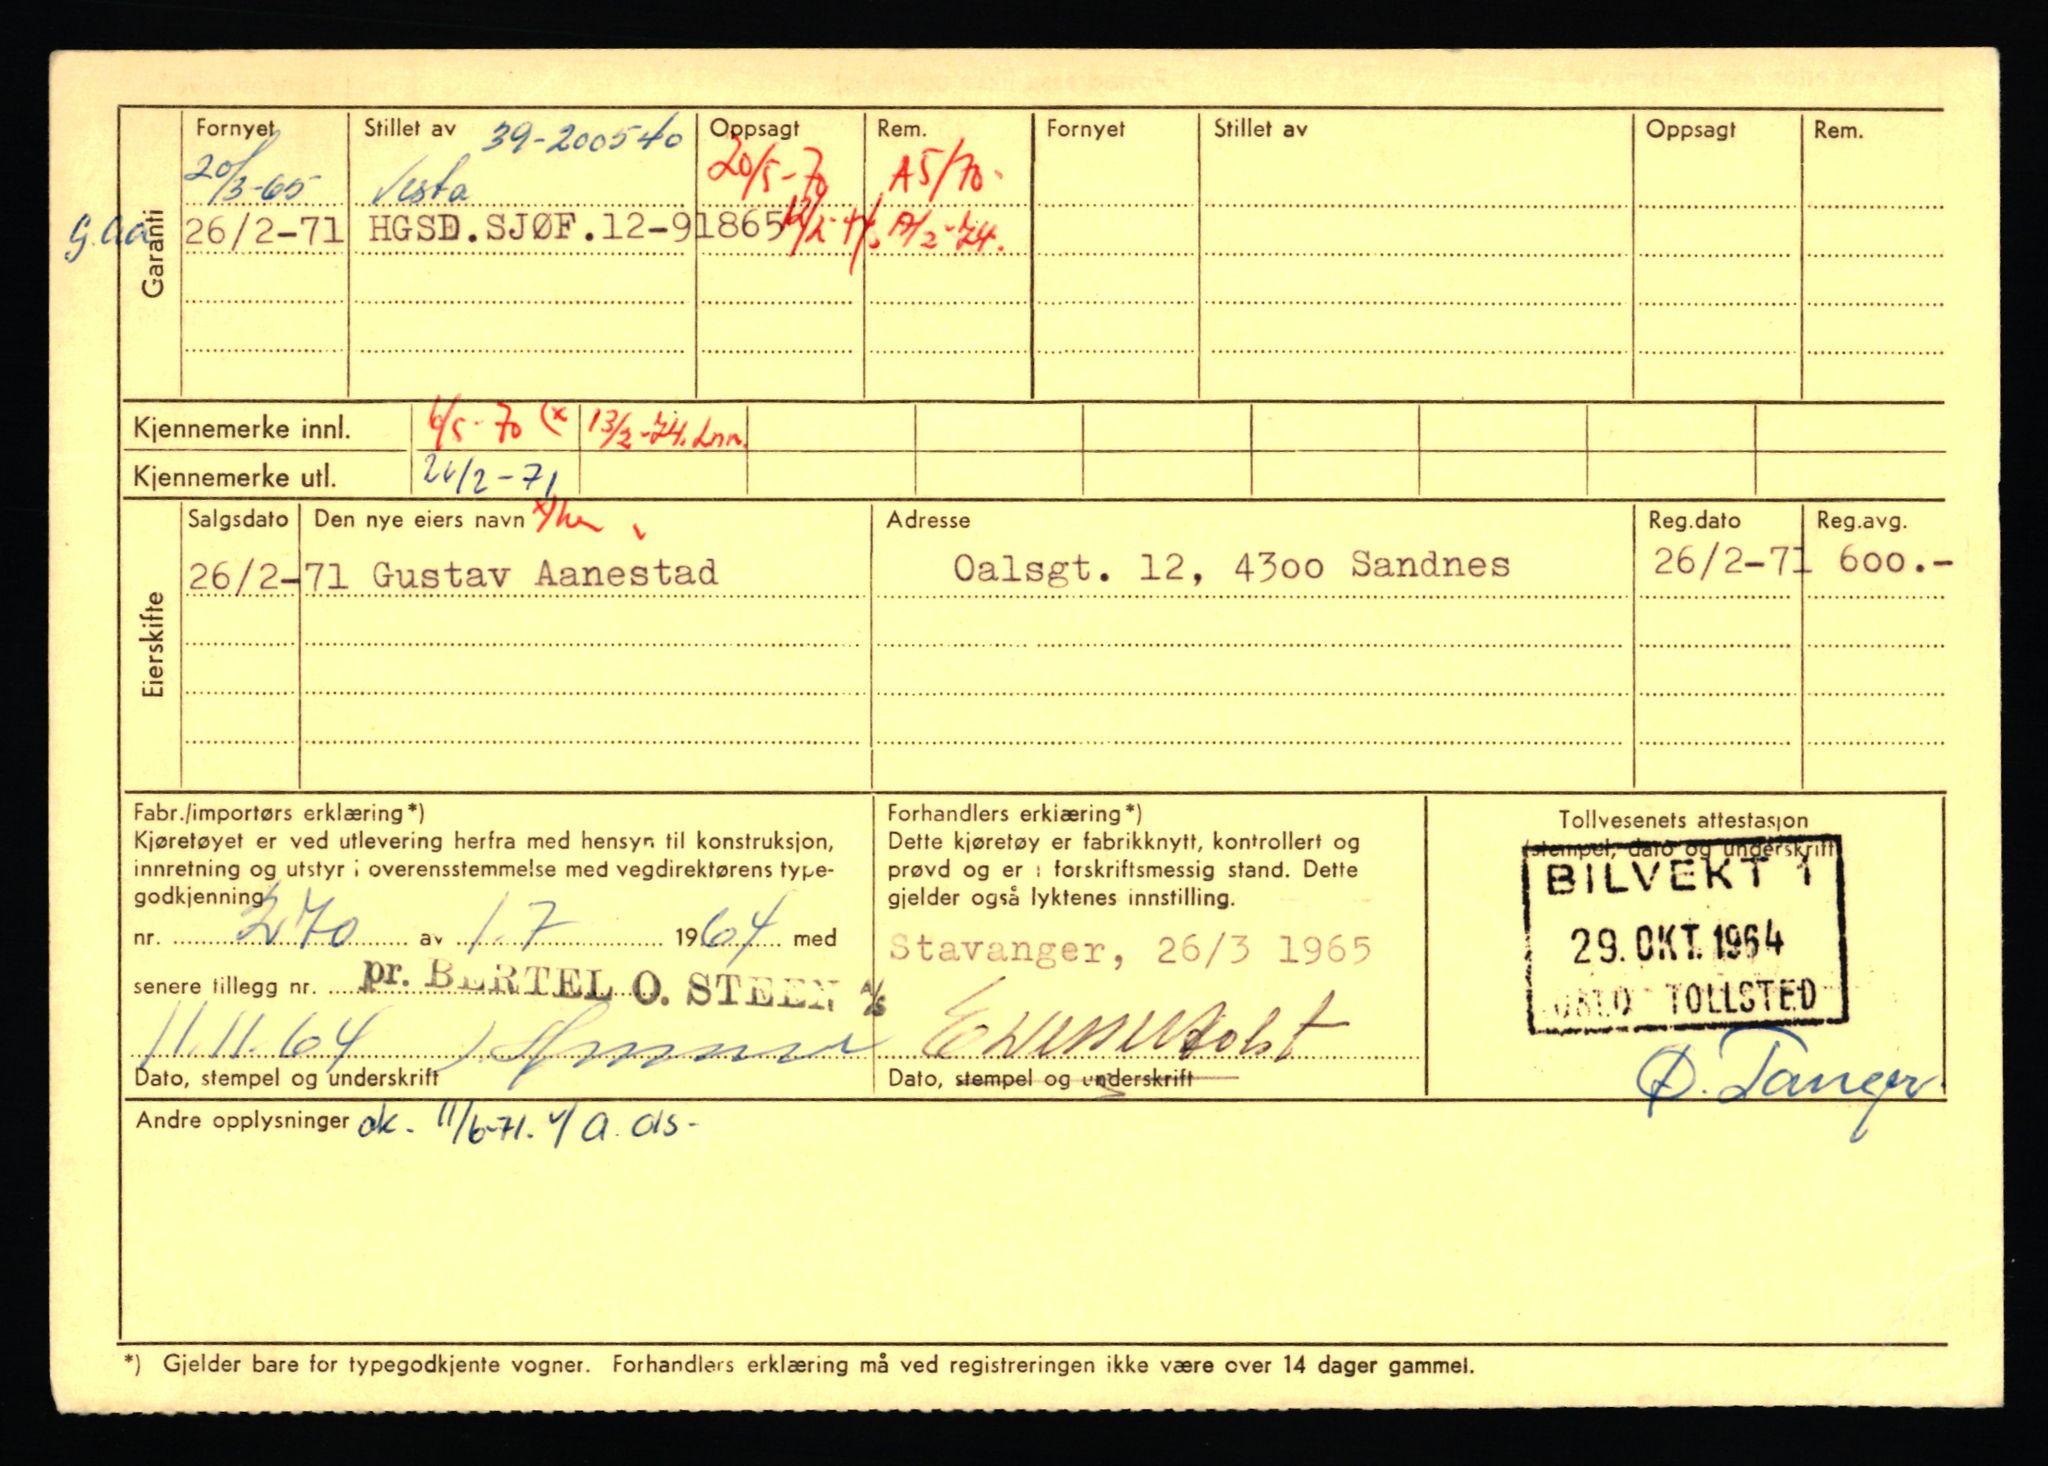 Garanti
Fornyet Stillet av Oppsagt Rem. Fornyet Stillet av Oppsagt Rem.
39-200540
20/3-65 Vesta 20/5-70 A5/70.
G.Aa 26/2-71 HGSD.SJØF.12-91865 A/2-74.
Kjennemerke innl. 6/5-70 (x 13/2-74. Inn.
Kjennemerke utl. 26/2-71
Eierskifte
Salgsdato Den nye eiers navn Adresse Reg.dato Reg.avg.
26/2-71 Gustav Aanestad Oalsgt. 12, 4300 Sandnes 26/2-71 600.-
Fabr./importørs erklæring*)
Kjøretøyet er ved utlevering herfra med hensyn til konstruksjon,
innretning og utstyr i overensstemmelse med vegdirektørens type-
godkjenning
nr. 270 av 1.7 1964 med
senere tillegg nr. pr. BERTEL O. STEEN A/S
11.11.64
Dato, stempel og underskrift
Forhandlers erklæring*)
Dette kjøretøy er fabrikknytt, kontrollert og
prøvd og er i forskriftsmessig stand. Dette
gjelder også lyktenes innstilling.
Stavanger, 26/3 1965
Dato, stempel og underskrift
Tollvesenets attestasjon
(stempel, dato og underskrift
BILVEKT 1
29. OKT. 1964
OSLO TOLLSTED
Ø. Tanger
Andre opplysninger ok. 11/6-71.
*) Gjelder bare for typegodkjente vogner. Forhandlers erklæring må ved registreringen ikke være over 14 dager gammel.